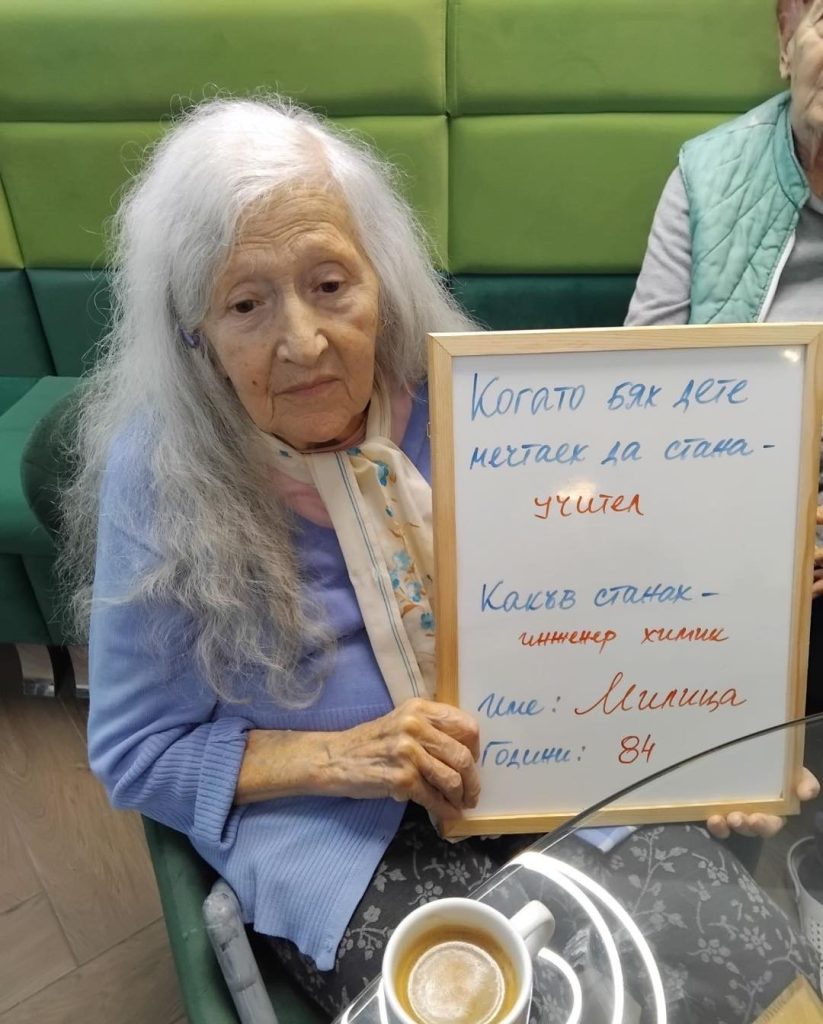 Когато бях дете
мечтаех да стана -
учител
Какъв станах -
инженер химик
Име: Милица
Години: 84